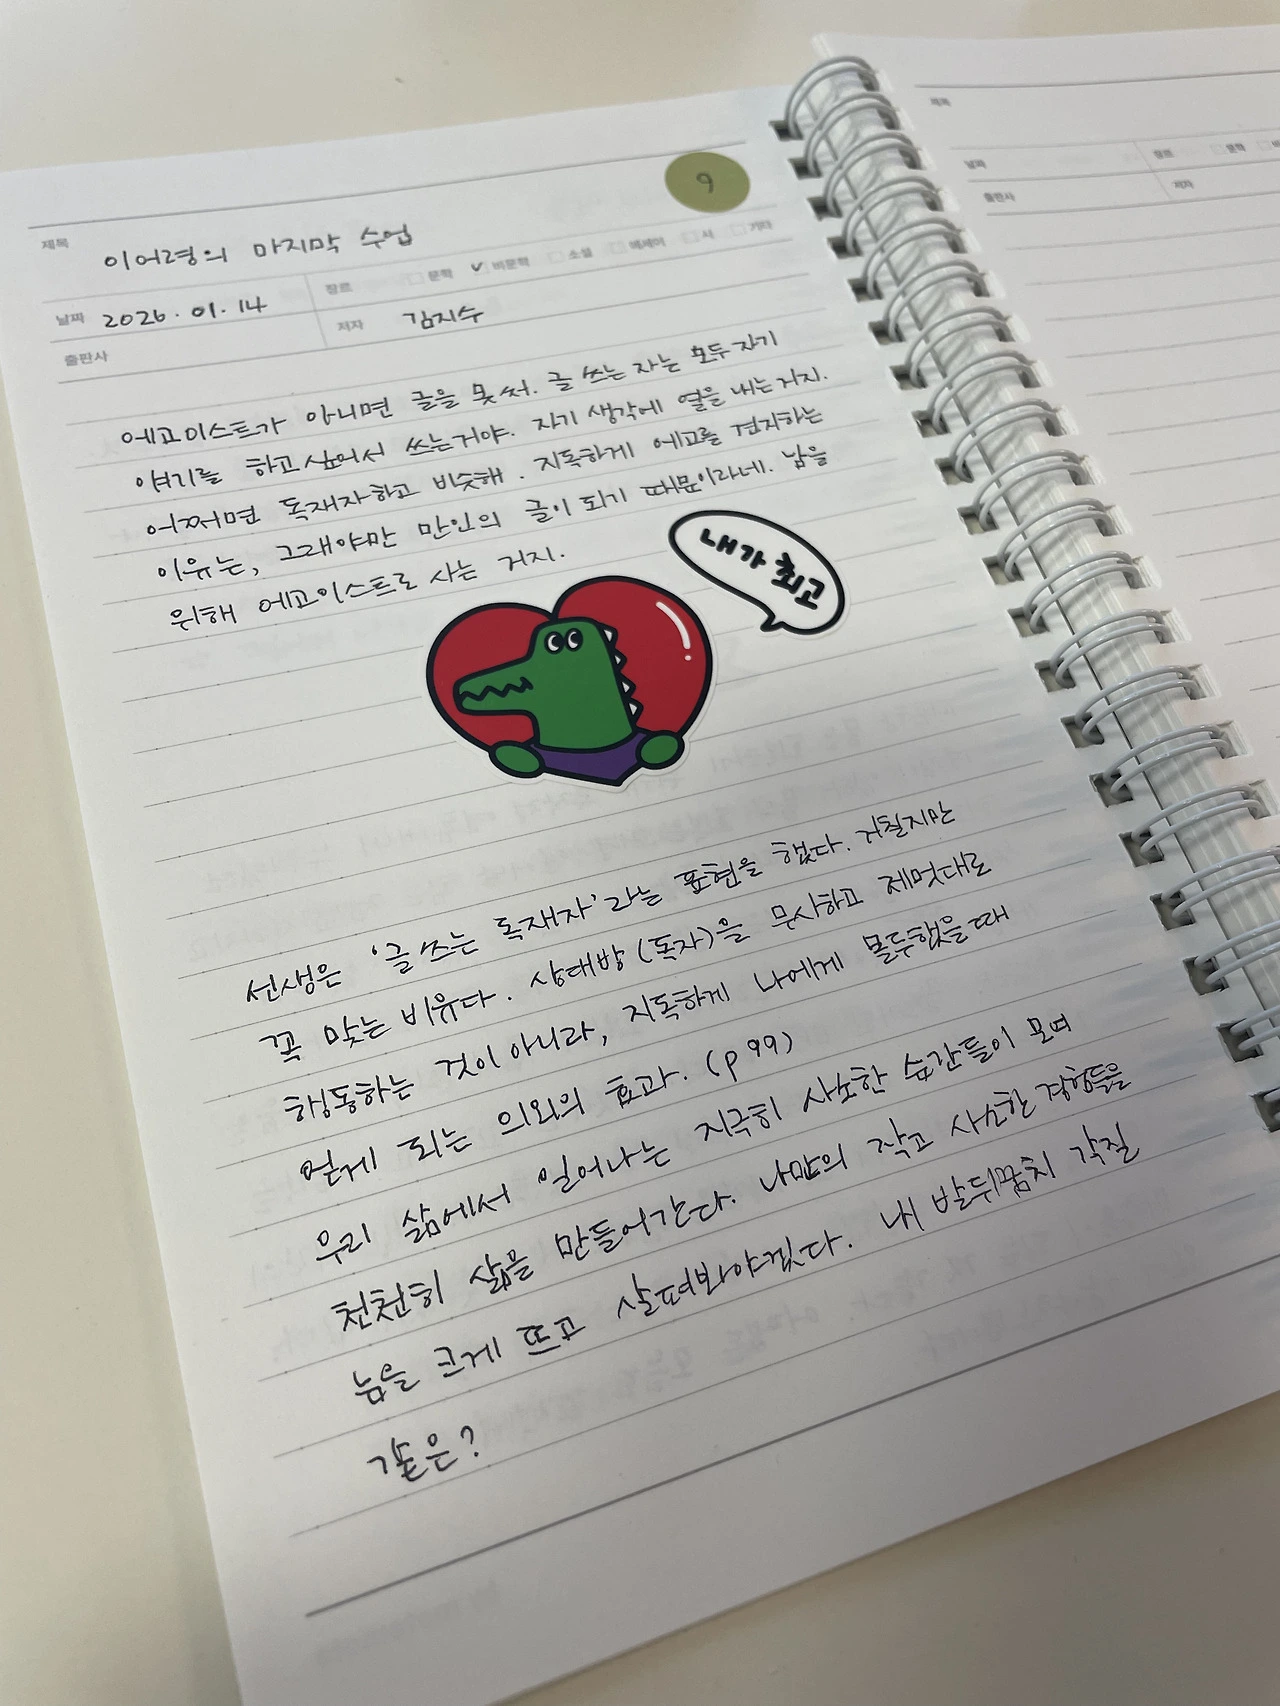 9
제목 이어령의 마지막 수업
날짜 2026.01.14 장르 문학 ✓ 비문학 소설 에세이 시 기타
출판사 저자 김지수
에고이스트가 아니면 글을 못 써. 글 쓰는 자는 모두 자기
얘기를 하고 싶어서 쓰는거야. 자기 생각에 열을 내는거지.
어쩌면 독재자하고 비슷해. 지독하게 에고를 견지하는
이유는, 그래야만 만인의 글이 되기 때문이라네. 남을
위해 에고이스트로 사는 거지.
내가 최고
선생은 '글 쓰는 독재자'라는 표현을 했다. 거칠지만
꼭 맞는 비유다. 상대방(독자)을 무시하고 제멋대로
행동하는 것이 아니라, 지독하게 나에게 몰두했을 때
얻게 되는 의외의 효과. (p 99)
우리 삶에서 일어나는 지극히 사소한 순간들이 모여
천천히 삶을 만들어간다. 나만의 작고 사소한 경험들을
눈을 크게 뜨고 살펴봐야겠다. 내 발뒤꿈치 각질
같은?
제목
날짜 장르 문학
출판사 저자